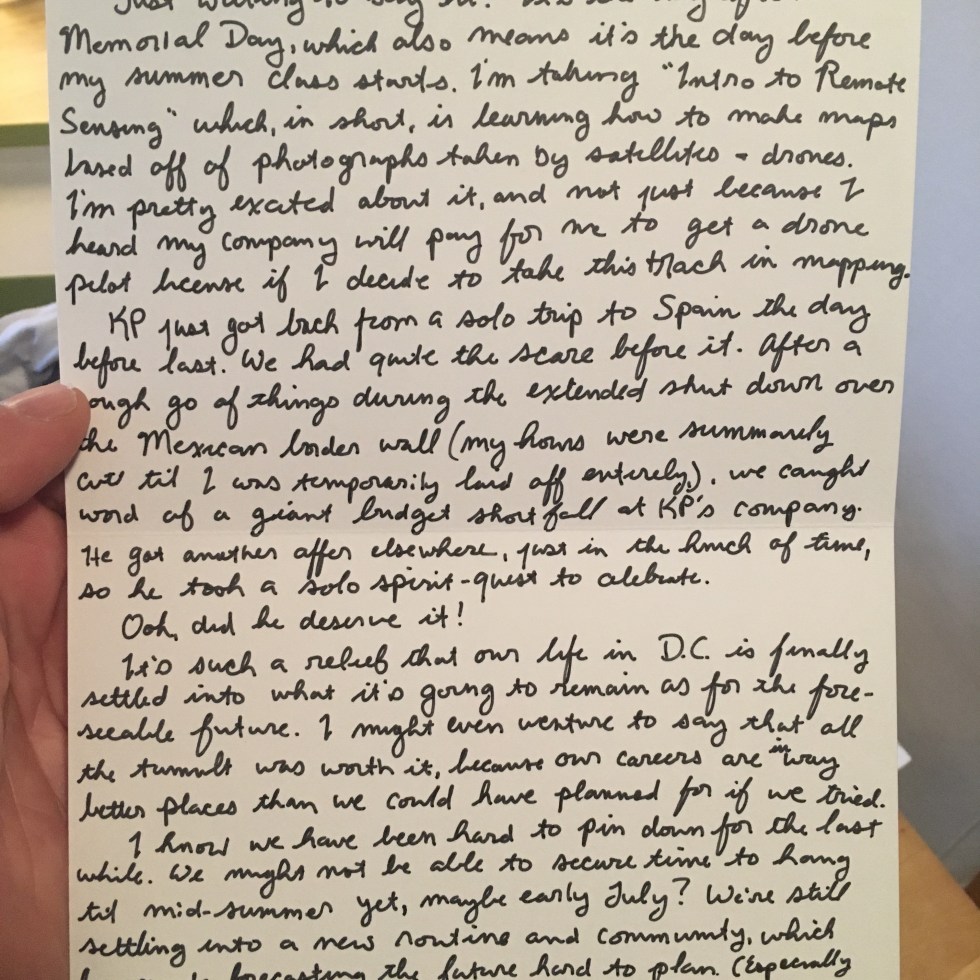 Just writing to say hi! It's the day after
Memorial Day, which also means it's the day before
my summer class starts. I'm taking "Intro to Remote
Sensing" which, in short, is learning how to make maps
based off of photographs taken by satellites + drones.
I'm pretty excited about it, and not just because I
heard my company will pay for me to get a drone
pilot license if I decide to take this track in mapping.
KP just got back from a solo trip to Spain the day
before last. We had quite the scare before it. After a
ough go of things during the extended shut down over
the Mexican border wall (my hours were summarily
cut til I was temporarily laid off entirely), we caught
word of a giant budget shortfall at KP's company.
He got another offer elsewhere, just in the knick of time,
so he took a solo spirit-quest to celebrate.
Ooh, did he deserve it!
It's such a relief that our life in D.C. is finally
settled into what it's going to remain as for the fore-
seeable future. I might even venture to say that all
the tumult was worth it, because our careers are in way
better places than we could have planned for if we tried.
I know we have been hard to pin down for the last
while. We might not be able to secure time to hang
til mid-summer yet, maybe early July? We're still
settling into a new routine and community, which
forecasting the future hard to plan. (Especially